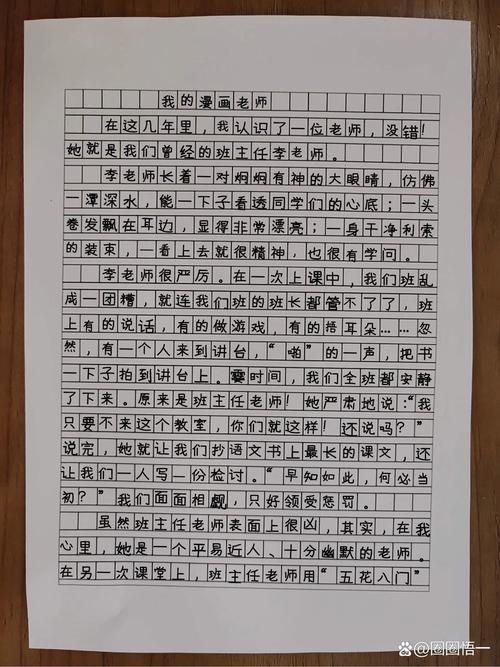 我的漫画老师
在这几年里，我认识了一位老师，没错！
她就是我们曾经的班主任李老师。
李老师长着一对炯炯有神的大眼睛，仿佛
一潭深水，能一下子看透同学们的心底；一头
卷发飘在耳边，显得非常漂亮；一身干净利索
的装束，一看上去就很精神，也很有学问。
李老师很严厉。在一次上课中，我们班乱
成一团糟，就连我们班的班长都管不了了，班
上有的说话，有的做游戏，有的捂耳朵……忽
然，有一个人来到讲台，“啪”的一声，把书
一下子拍到讲台上。霎时间，我们全班都安静
了下来。原来是班主任老师！她严肃地说：“我
只要不来这个教室，你们就这样！还说吗？”
说完，她就让我们抄语文书上最长的课文，还
让我们一人写一份检讨。“早知如此，何必当
初？”我们面面相觑，只好领受惩罚。
虽然班主任老师表面上很凶，其实，在我
心里，她是一个平易近人、十分幽默的老师。
在另一次课堂上，班主任老师用“五花八门”
@圈圈悟一